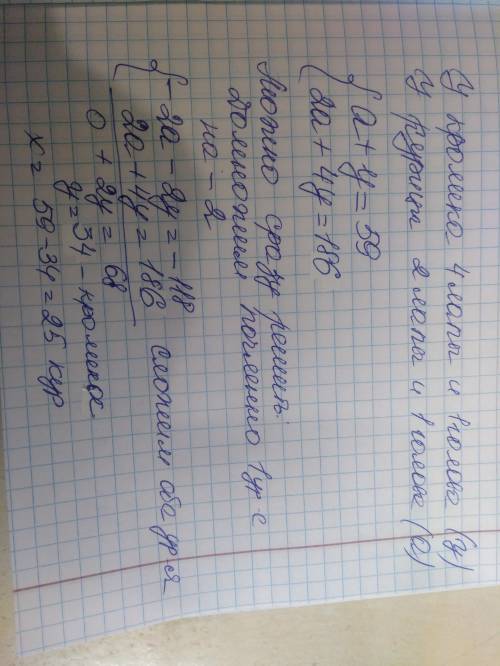 У кролика 4 лапы и 1 голова (y)
У курицы 2 лапы и 1 голова (a)
{ a + y = 59
2a + 4y = 186
Можно сразу решить:
домножим почленно 1 ур-е
на - 2
{ -2a - 2y = -118 сложим оба ур-я
2a + 4y = 186
0 + 2y = 68
y = 34 - кролика
x = 59-34 = 25 кур